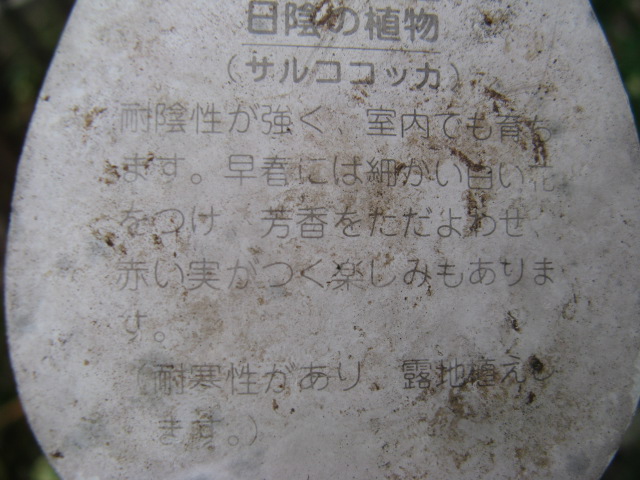 日陰の植物
(サルココッカ)
耐陰性が強く 室内でも育ち
ます。早春には細かい白い花
をつけ 芳香をただよわせ、
赤い実がつく楽しみもありま
す。
(耐寒性があり、露地植え
きます。)